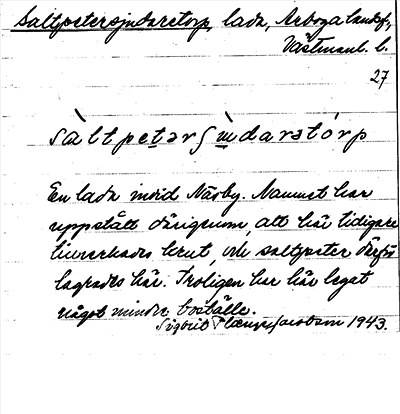 Saltpetersjudaretorp, lada, Arboga landsf.,
Västmanl. l.
27
sàltpetərʃùdarstórp
En lada invid Näsby. Namnet har
uppstått därigenom, att här tidigare
tillverkades krut, och saltpeter därför
lagrades här. Troligen har här legat
något mindre boställe.
Sigbrit Plænge Jacobson 1943.